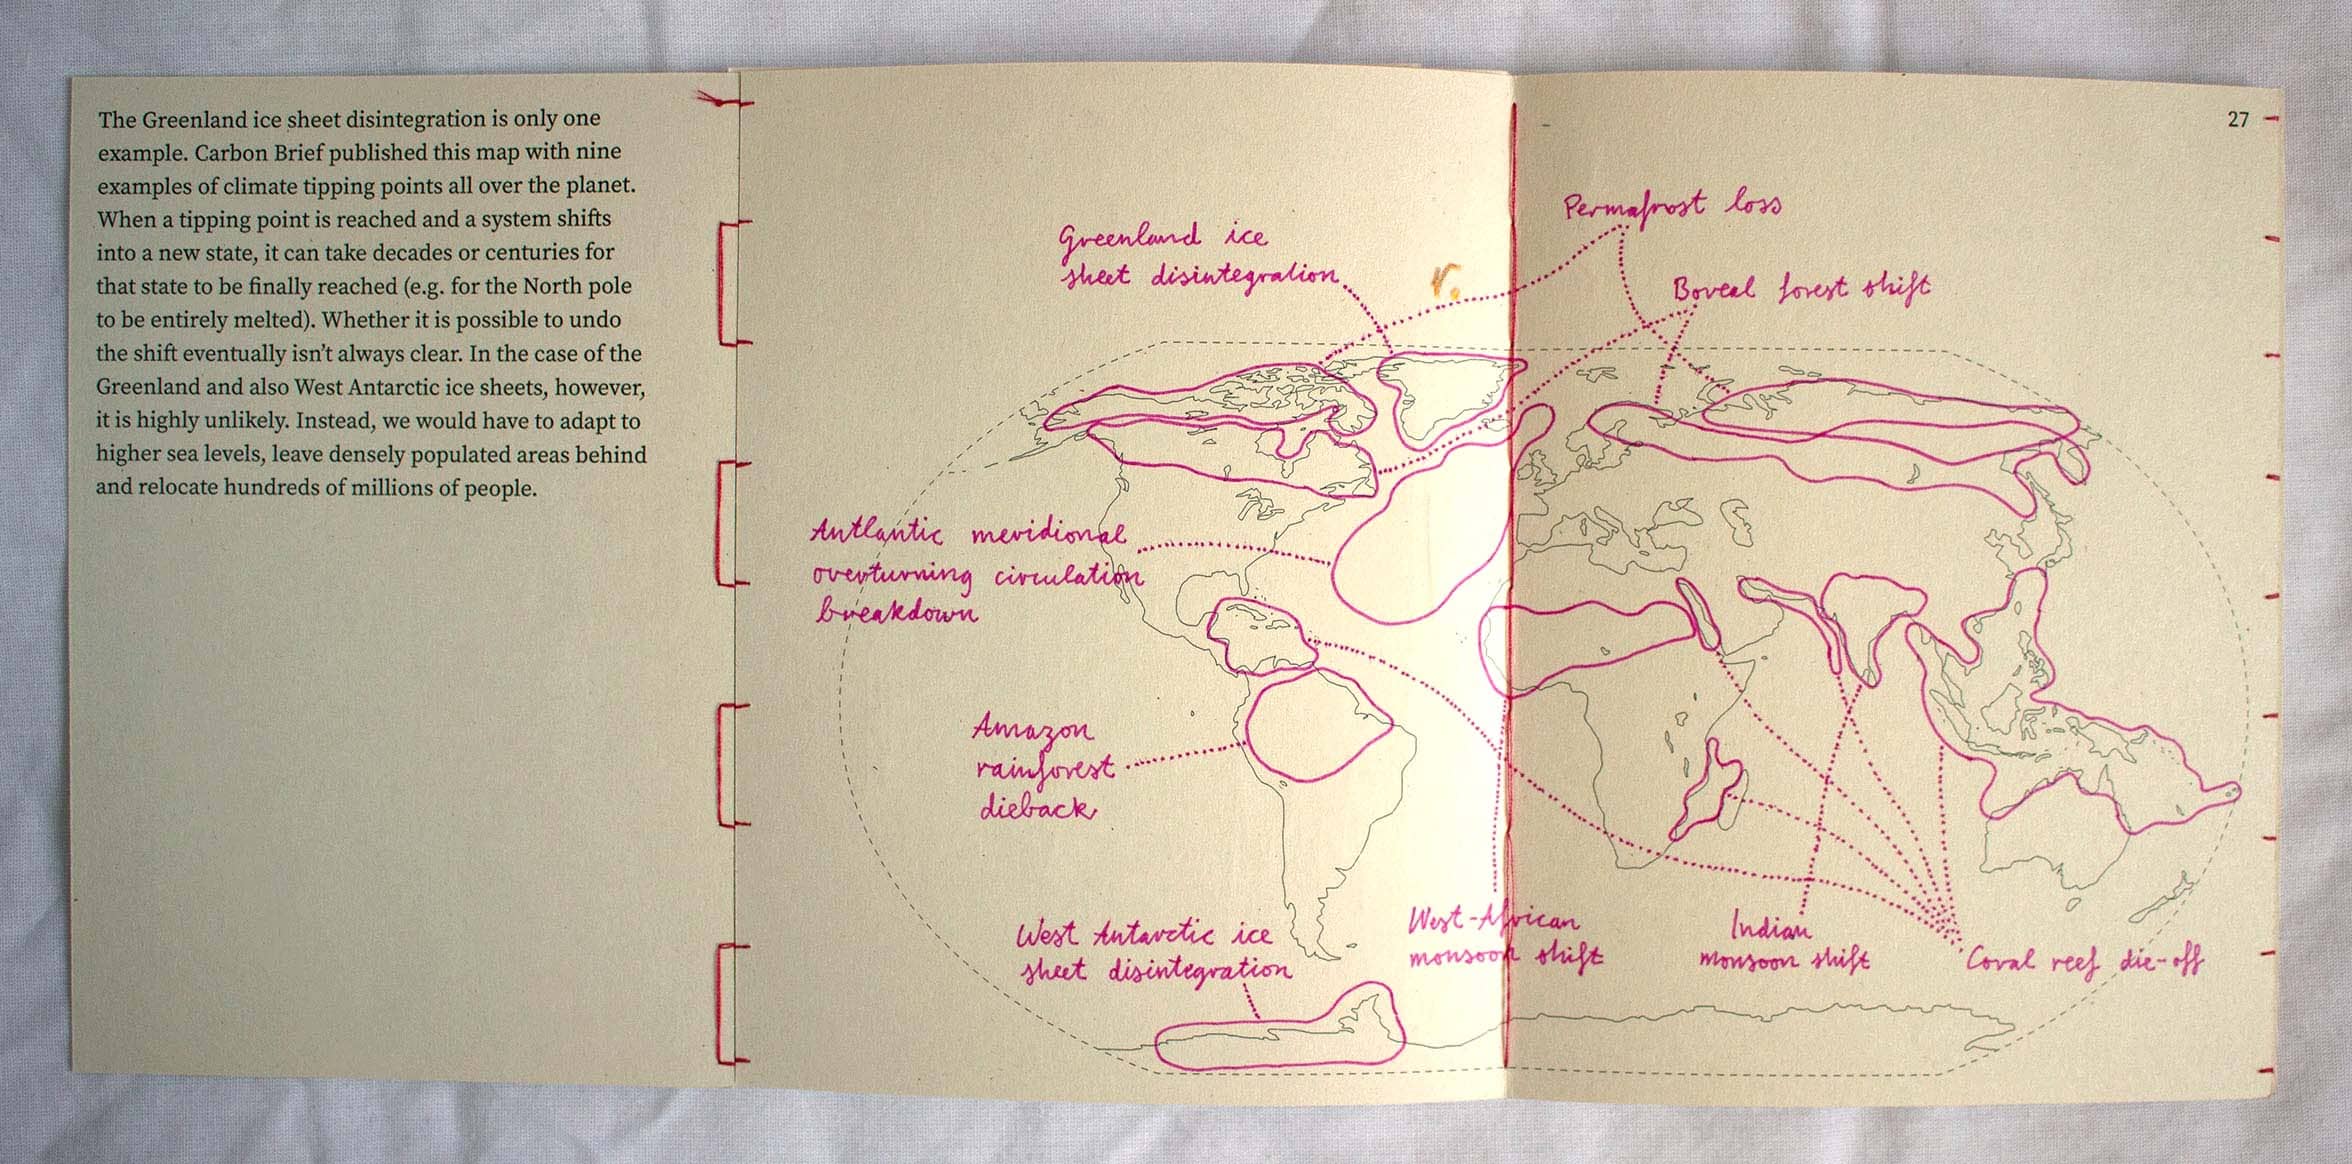 The Greenland ice sheet disintegration is only one
example. Carbon Brief published this map with nine
examples of climate tipping points all over the planet.
When a tipping point is reached and a system shifts
into a new state, it can take decades or centuries for
that state to be finally reached (e.g. for the North pole
to be entirely melted). Whether it is possible to undo
the shift eventually isn’t always clear. In the case of the
Greenland and also West Antarctic ice sheets, however,
it is highly unlikely. Instead, we would have to adapt to
higher sea levels, leave densely populated areas behind
and relocate hundreds of millions of people.
27
Permafrost loss
Greenland ice
sheet disintegration
Boreal forest shift
Antlantic meridional
overturning circulation
breakdown
Amazon
rainforest
dieback
West Antarctic ice
sheet disintegration
West-African
monsoon shift
Indian
monsoon shift
Coral reef die-off